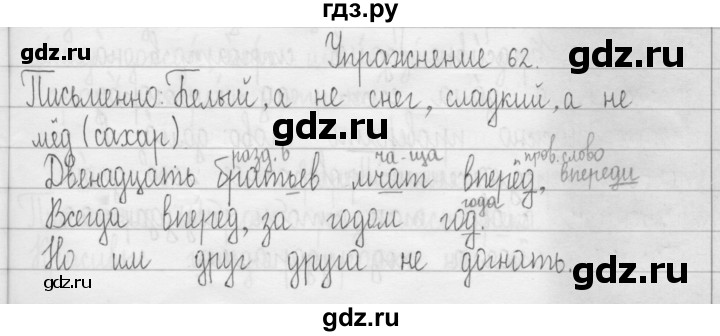 гдз.ру
gdz.ru
gdz.ru
Упражнение 62.
Письменно: Белый, а не снег, сладкий, а не
gdz.ru
мёд (сахар)
разд. ь ча-ща пров. слово
Двенадцать братьев мчат вперёд, впереди
года
Всегда вперед, за годом год.
Но им друг друга не догнать.
gdz.ru
gdz.ru
gdz.ru